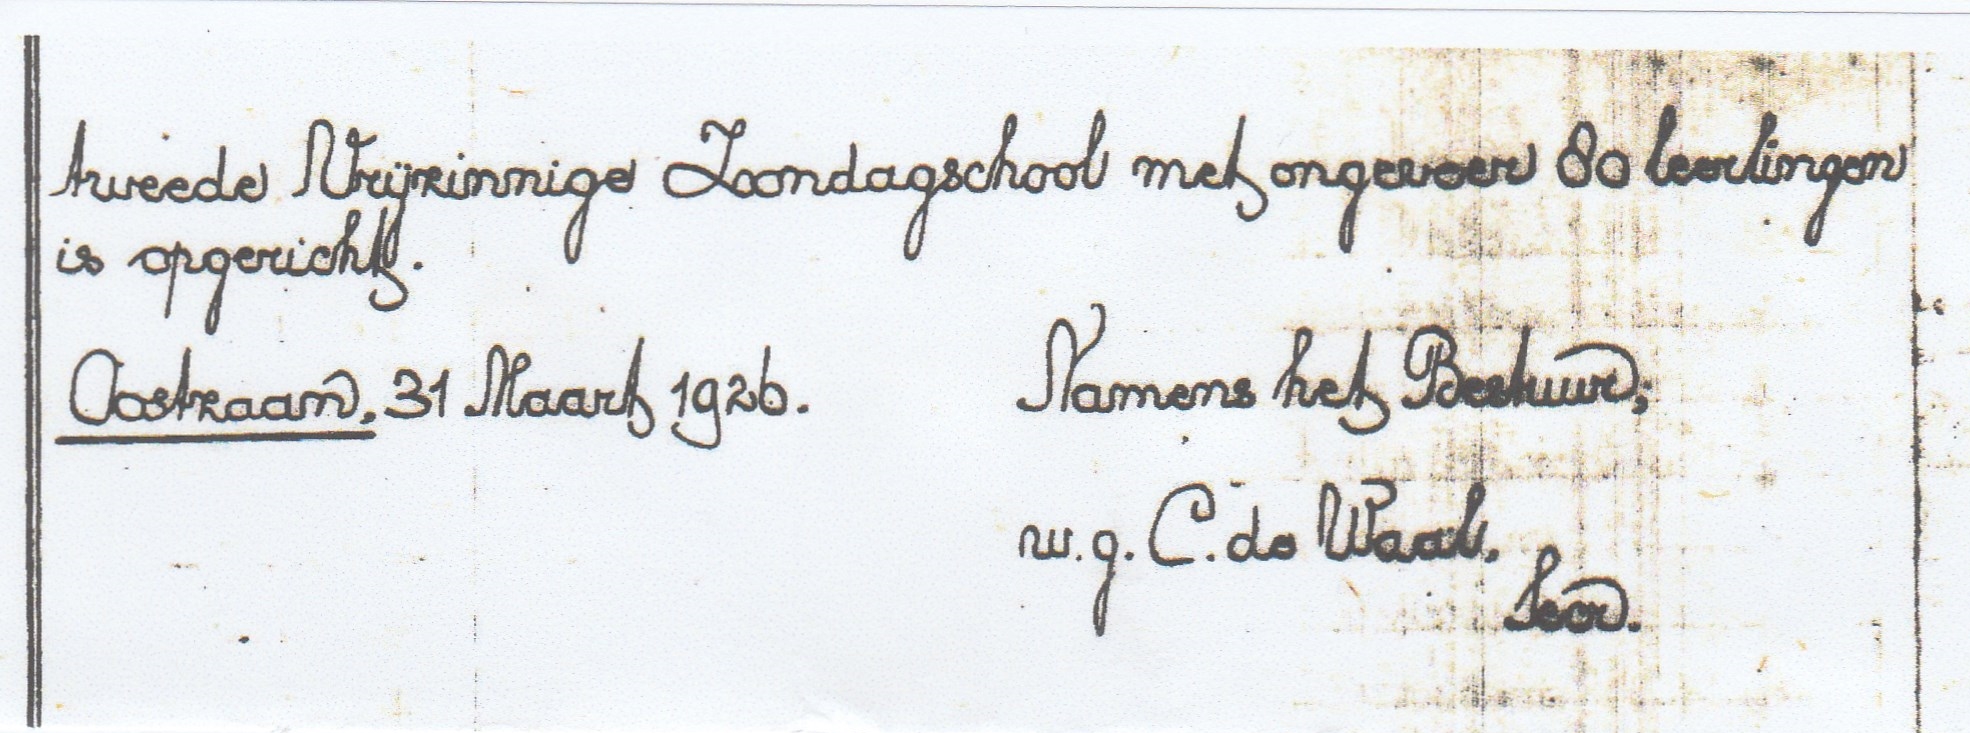 tweede Vrijzinnige Zondagschool met ongeveer 80 leerlingen
is opgericht.
Oostzaan, 31 Maart 1926.
Namens het Bestuur;
w.g. C. de Waal.
Secr.